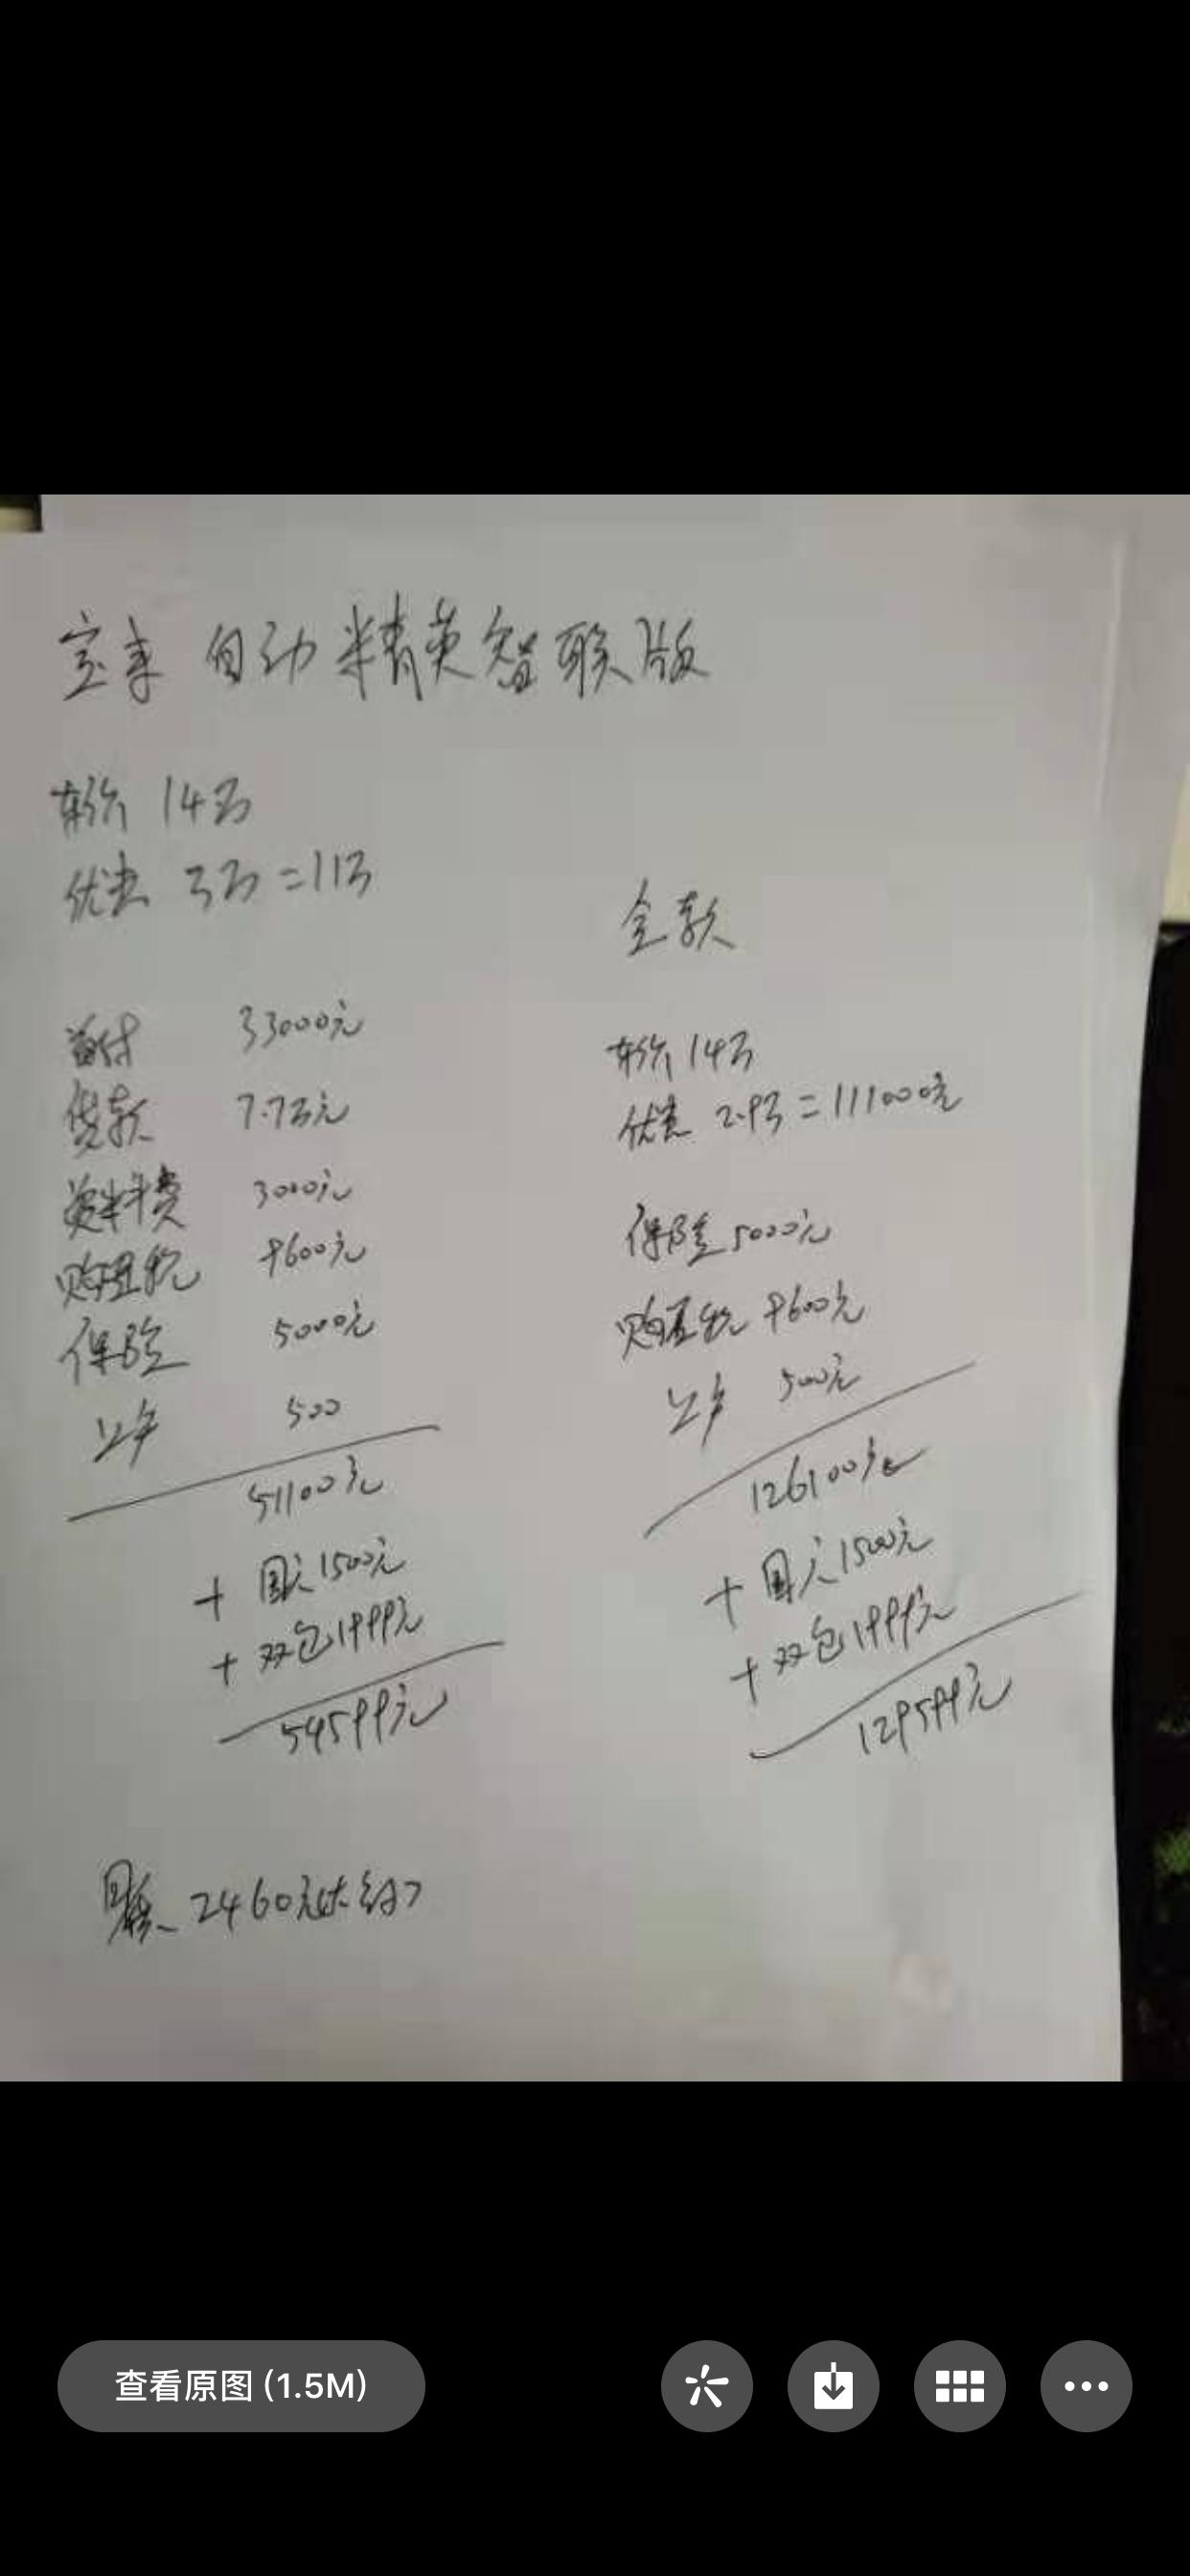 宝来 自动精英智联版
车价 14万
优惠 3万=11万
首付 33000元
贷款 7.7万元
资料费 3000元
购置税 9600元
保险 5000元
上户 500
51100元
+ 国六1500元
+ 双包1999元
54599元
月供 2460元大约
全款
车价 14万
优惠 2.9万=111000元
保险 5000元
购置税 9600元
上户 500元
126100元
+ 国六1500元
+ 双包1999元
129599元
查看原图 (1.5M)